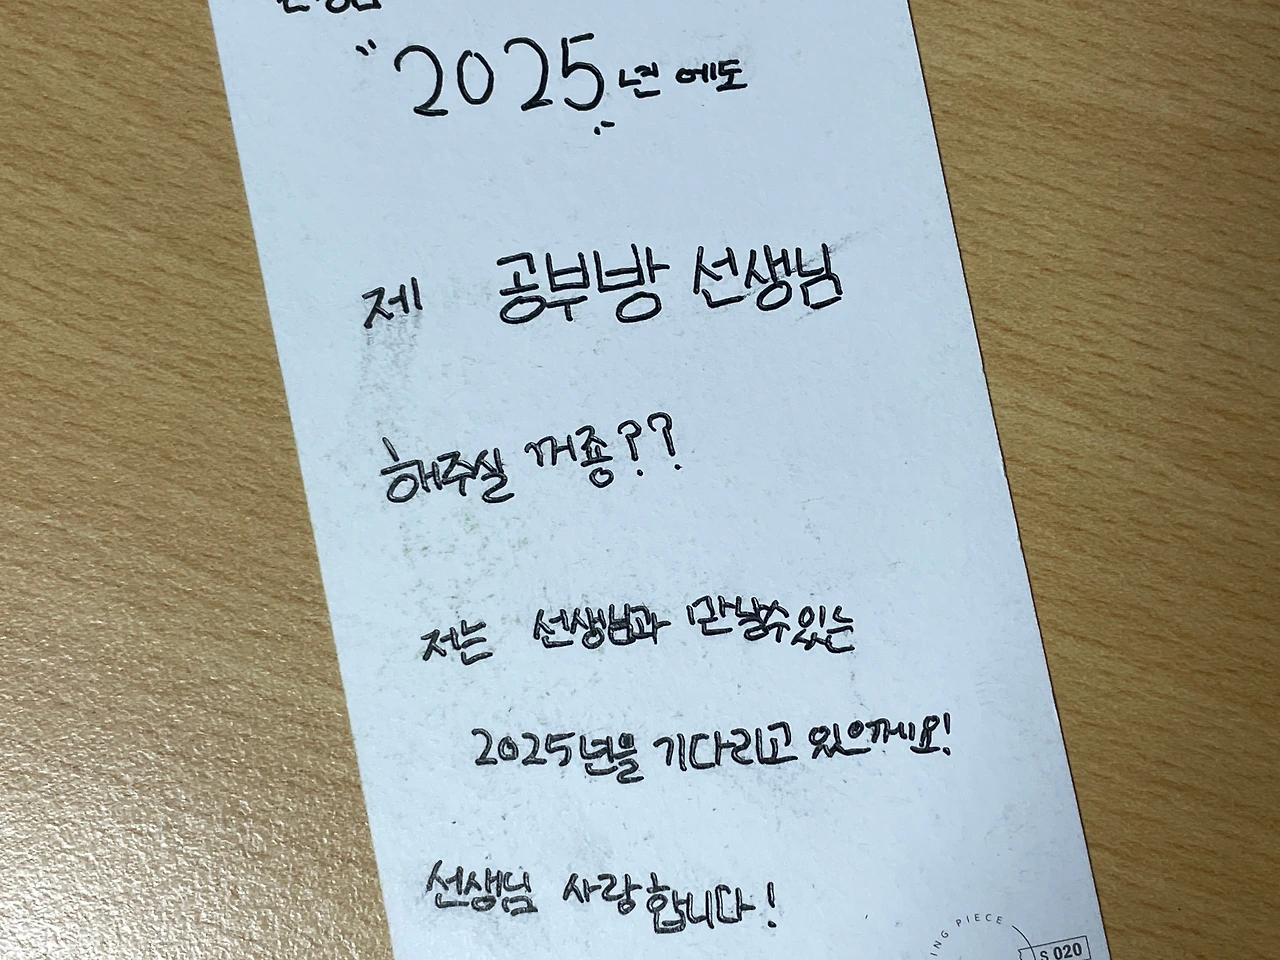 "2025"년에도
제 공부방 선생님
해주실 꺼죵??
저는 선생님과 만날수있는
2025년을 기다리고 있으께요!
선생님 사랑합니다!
ING PIECE
S 020